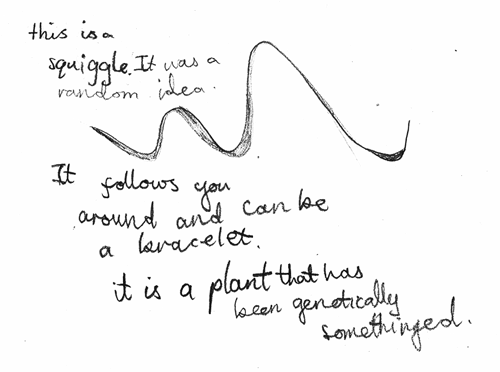 this is a
squiggle. It was a
random idea.
It follows you
around and can be
a bracelet.
it is a plant that has
been genetically
somethinged.